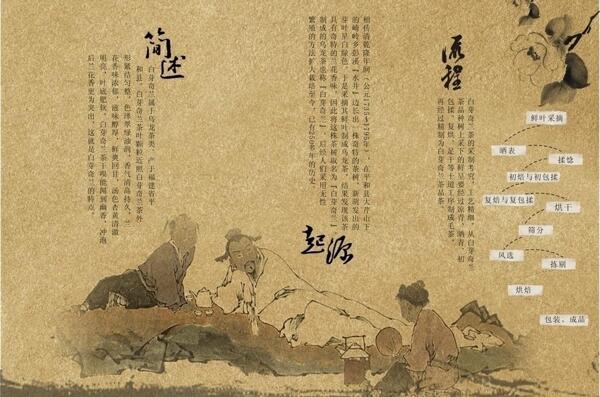 简述
白芽奇兰属于乌龙茶类，产于福建省平
和县，白芽奇兰茶叶颗粒近照白芽奇兰茶外
形紧结匀整，色泽翠绿油润，香气清高持久，兰
花香味浓郁，滋味醇厚，鲜爽回甘，汤色杏黄清澈
明亮，叶底肥软。白芽奇兰茶干嗅能闻到幽香，冲泡
后兰花香更为突出，这就是白芽奇兰的特点。
起源
相传清乾隆年间（公元1735~1795年），在平和县大芹山下
的崎岭乡彭溪“水井”边长出一株奇特的茶树，新萌发出的
芽叶呈白绿色，于是采摘其鲜叶制成乌龙茶，结果发现该茶
具有奇特的兰花香味，因此将这株茶树取名为“白芽奇兰”，
制成的乌龙茶也称“白芽奇兰”。后经人们采用无性
繁殖的方法扩大栽培至今，已有250多年的历史
流程
白芽奇兰茶的采制考究，工艺精细，从白芽奇兰
茶品种树上采下的鲜叶要经过凉青、晒青、初
包揉、复烘、足干等十道工序制成毛茶，
再经过精制为白芽奇兰茶品茶。
鲜叶采摘
晒表
揉捻
初焙与初包揉
复焙与复包揉
烘干
筛分
风选
拣剔
烘焙
包装、成品